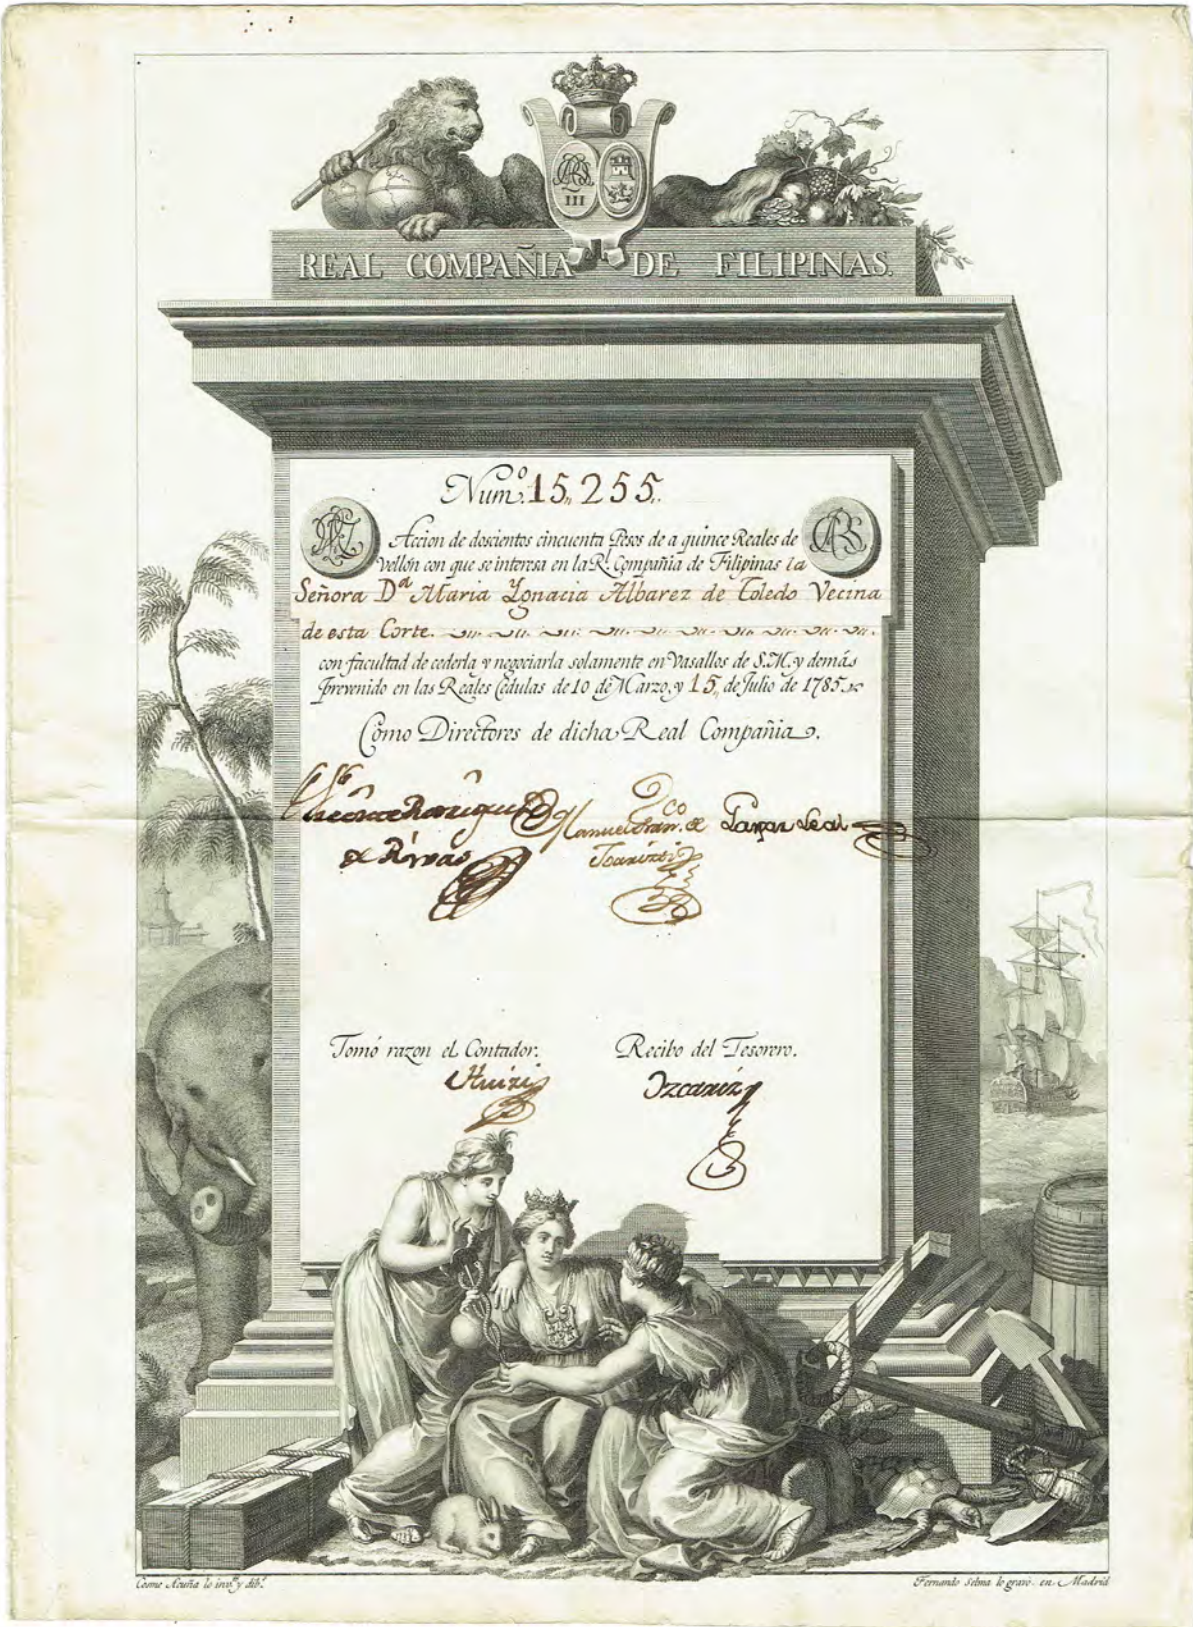 III
REAL COMPAÑIA DE FILIPINAS.
Num.º 15,, 255.
Accion de doscientos cincuenta Pesos de a quince Reales de
Vellón con que se interesa en la R.l Compañia de Filipinas la
Señora D.a Maria Ygnacia Albarez de Toledo Vecina
de esta Corte.
con facultad de cederla y negociarla solamente en Vasallos de S.M. y demás
prevenido en las Reales Cédulas de 10 de Marzo, y 15,, de Julio de 1785.
Como Directores de dicha Real Compañia.
de Rivas
Manuel Fran.co de
Tomó razon el Contador.
Recibo del Tesorero.
Cosme Acuña lo inv.tó y dib.ó
Fernando Selma lo gravó en Madrid